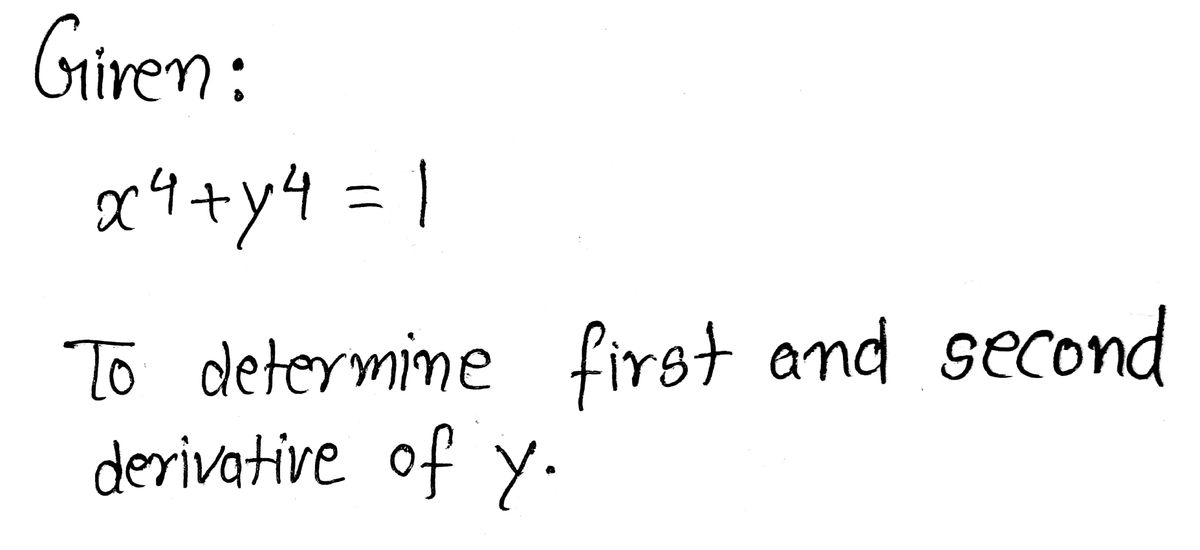 Given:
x⁴+y⁴ = 1
To determine first and second
derivative of y.